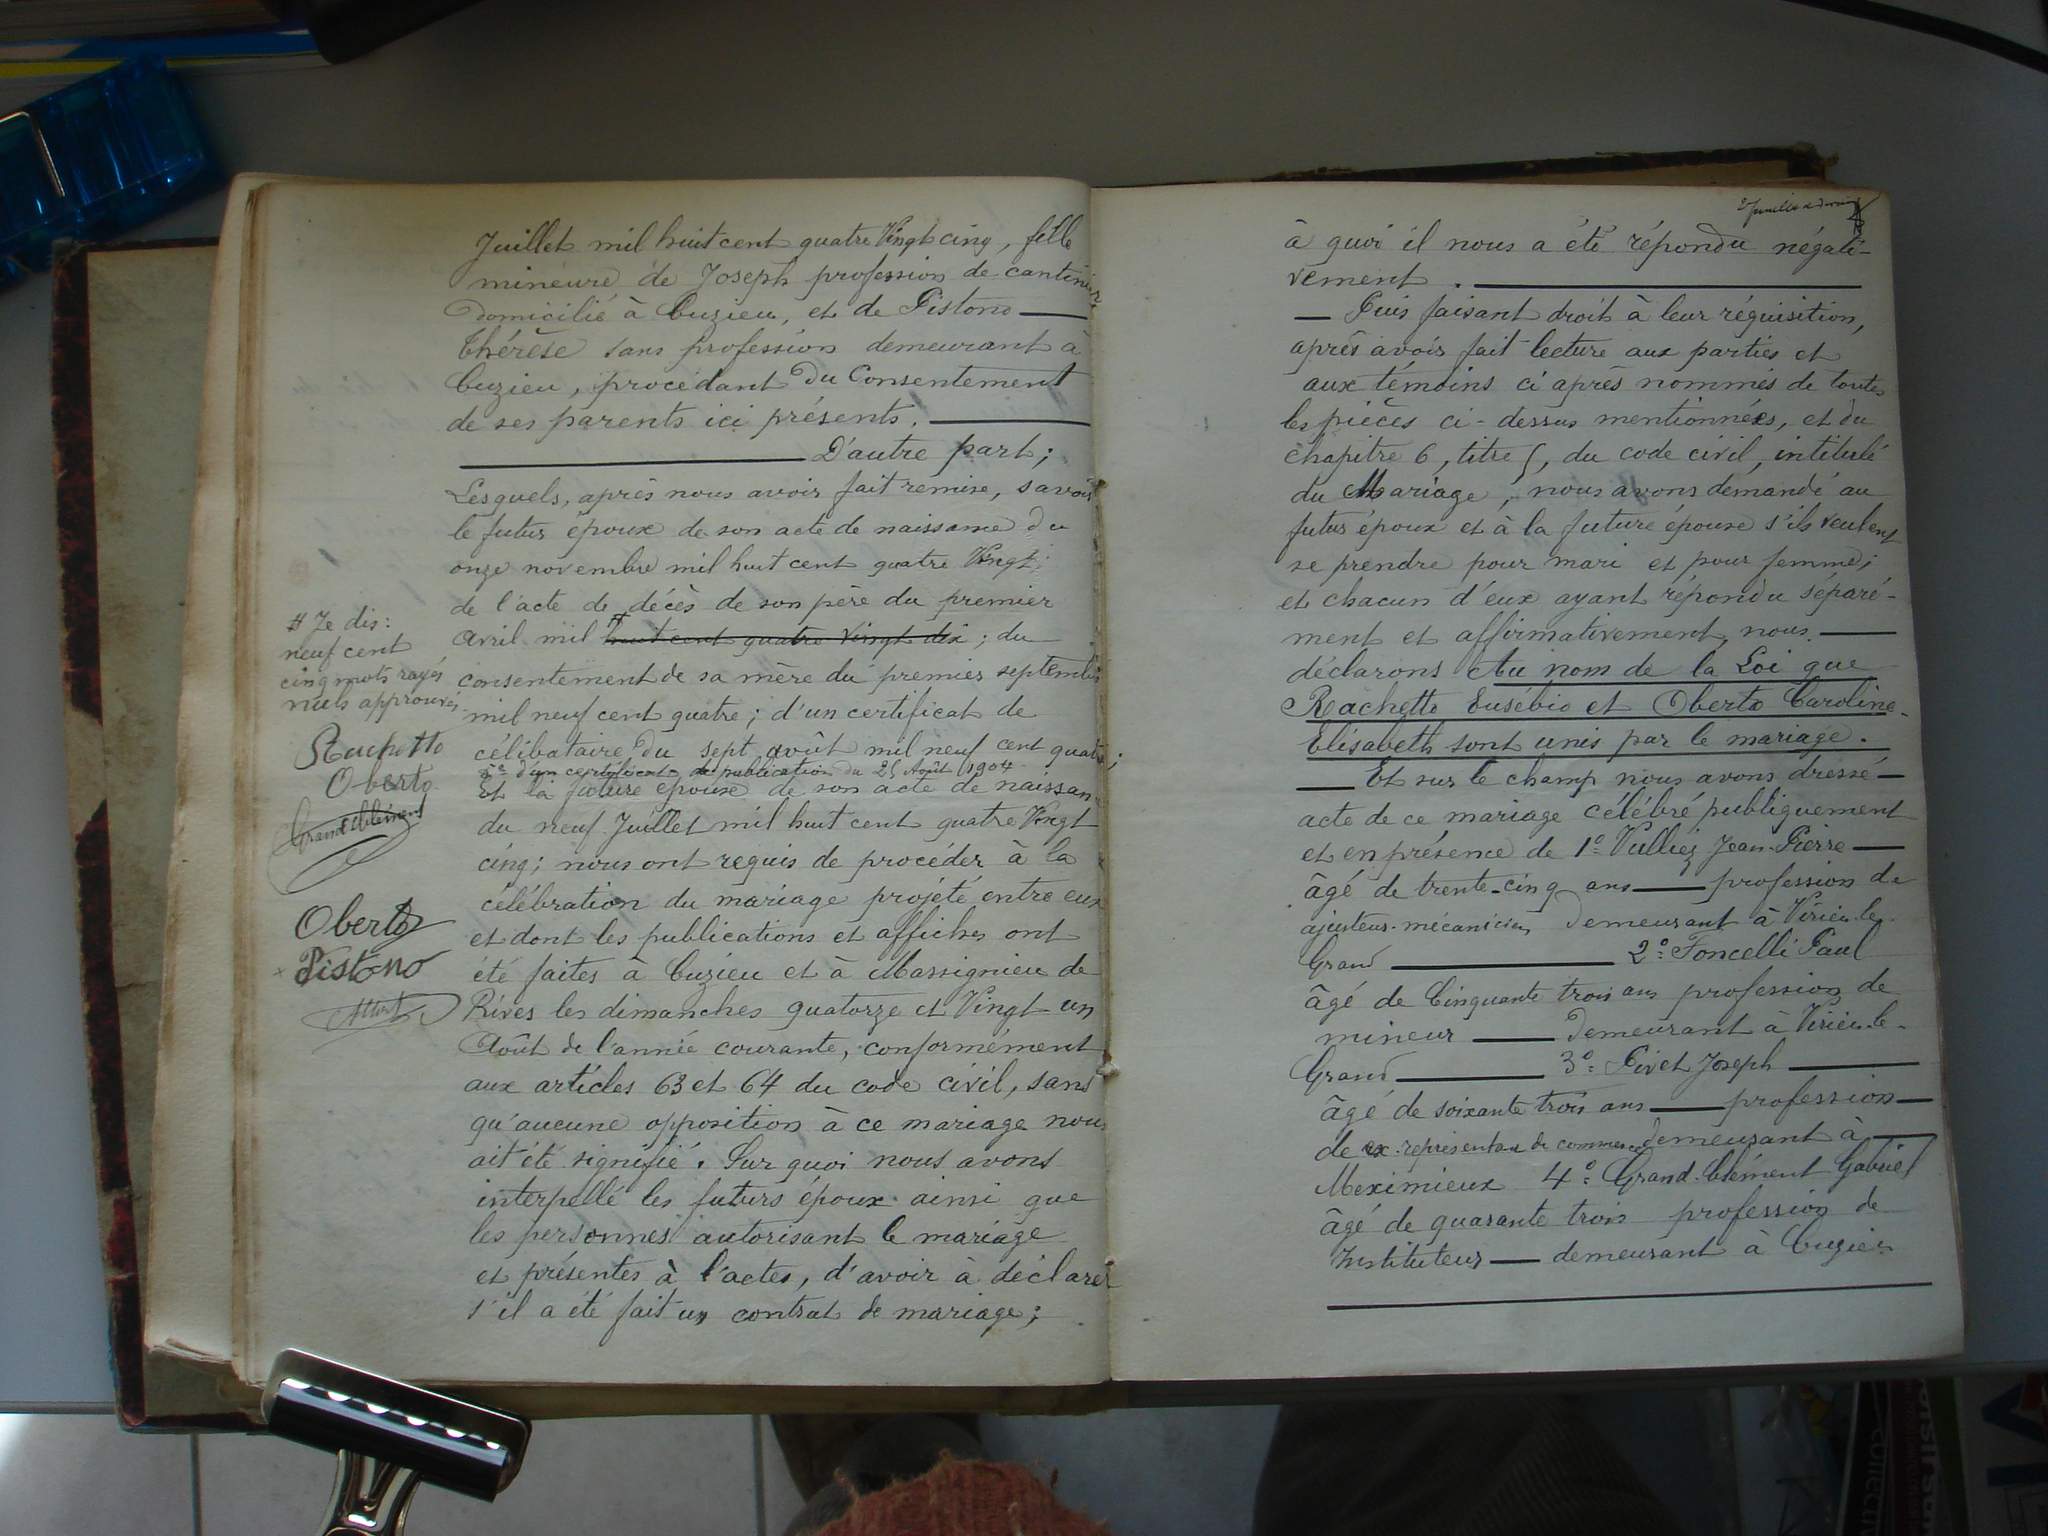 Juillet mil huit cent quatre Vingt cinq, fille
mineure de Joseph profession de cantinier
domicilié à Cuzieu, et de Pistono
Thérèse sans profession demeurant à
Cuzieu, procédant du Consentement
de ses parents ici présents.
D'autre part;
Lesquels, après nous avoir fait remise, savoir
le futur époux de son acte de naissance du
onze novembre mil huit cent quatre Vingt;
de l'acte de décès de son père du premier
Avril mil # huit cent quatre vingt dix; du
consentement de sa mère du premier septembre
mil neuf cent quatre; d'un certificat de
célibataire du sept août mil neuf cent quatre;
d'un certificat de publication du 25 Août 1904
Et la future épouse de son acte de naissan
du neuf Juillet mil huit cent quatre Vingt
cinq; nous ont requis de procéder à la
célébration du mariage projeté entre eux
et dont les publications et affiches ont
été faites à Cuzieu et à Massignieu de
Rives les dimanches quatorze et Vingt un
Août de l'année courante, conformément
aux articles 63 et 64 du code civil, sans
qu'aucune opposition à ce mariage nous
ait été signifié. Sur quoi nous avons
interpellé les futurs époux ainsi que
les personnes autorisant le mariage
et présentes à l'actes, d'avoir à déclarer
s'il a été fait un contrat de mariage;
# Je dis:
neuf cent
cinq mots rayés
nuls approuvés
Rachetto
Oberto
Grand Clément
Oberto
Pistono
à quoi il nous a été répondu négati-
vement.
Puis faisant droit à leur réquisition,
après avoir fait lecture aux parties et
aux témoins ci après nommés de toutes
les pièces ci-dessus mentionnées, et du
chapitre 6, titre 5, du code civil, intitulé
du Mariage, nous avons demandé au
futur époux et à la future épouse s'ils veulent
se prendre pour mari et pour femme;
et chacun d'eux ayant répondu séparé-
ment et affirmativement, nous
déclarons Au nom de la Loi que
Rachetto Eusébio et Oberto Caroline-
Elisabeth sont unis par le mariage.
Et sur le champ nous avons dressé
acte de ce mariage célébré publiquement
et en présence de 1° Vulliez Jean-Pierre
âgé de trente-cinq ans profession de
ajusteur-mécanicien demeurant à Virieu-le-
Grand 2° Foncelli Paul
âgé de Cinquante trois ans profession de
mineur demeurant à Virieu-le-
Grand 3° Pivet Joseph
âgé de soixante trois ans profession
de ex-représentant de commerce demeurant à
Meximieux 4° Grand-Clément Gabriel
âgé de quarante trois profession de
Instituteur demeurant à Cuzieu